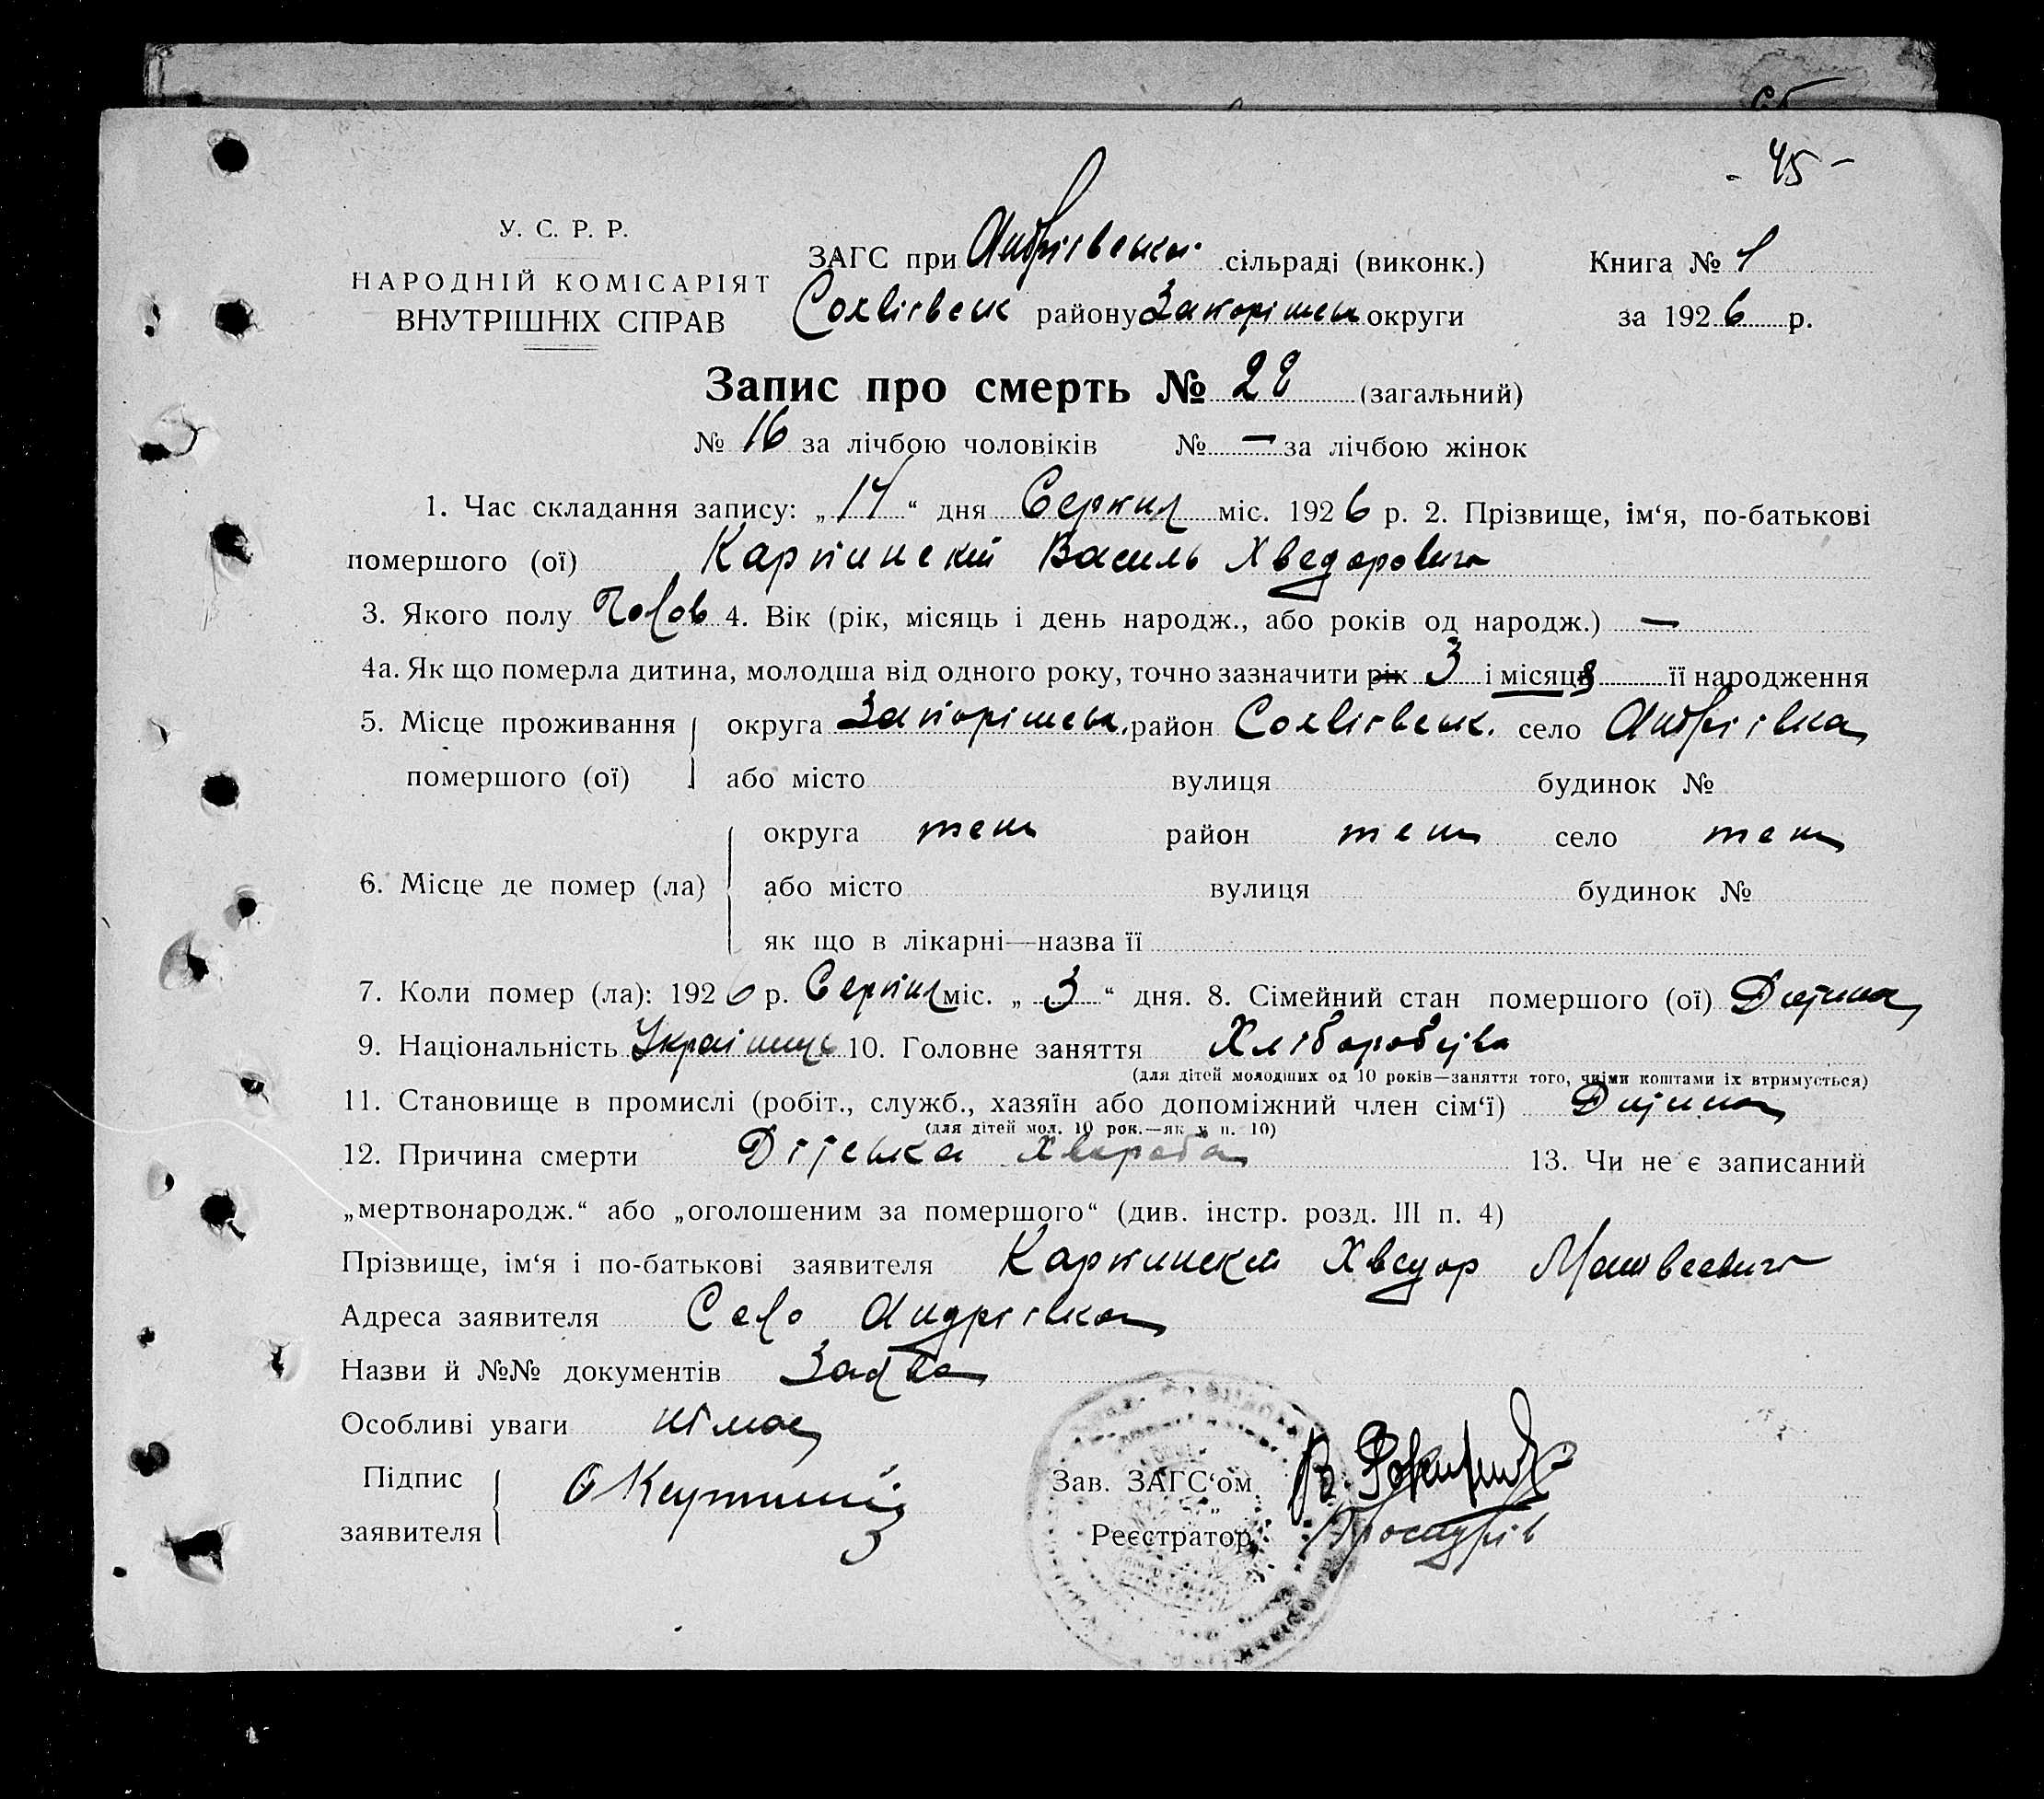 - 45 -
У. С. Р. Р.
НАРОДНІЙ КОМІСАРІЯТ
ВНУТРІШНІХ СПРАВ
ЗАГС при Андріівській сільраді (виконк.)
Софіівськ району Запоріжськ округи
Книга № 1
за 1926 р.
Запис про смерть № 28 (загальний)
№ 16 за лічбою чоловіків № — за лічбою жінок
1. Час складання запису: „17“ дня Серпня міс. 1926 р. 2. Прізвище, ім‘я, по-батькові
помершого (ої) Карпинский Василь Хведорович
3. Якого полу Чолов 4. Вік (рік, місяць і день народж., або років од народж.) —
4а. Як що померла дитина, молодша від одного року, точно зазначити рік 3 і місяця її народження
5. Місце проживання округа Запоріжськ. район Софіівськ. село Андріівка
помершого (ої) або місто вулиця будинок №
округа теж район теж село теж
6. Місце де помер (ла) або місто вулиця будинок №
як що в лікарні—назва її
7. Коли помер (ла): 1926 р. Серпня міс. „3“ дня. 8. Сімейний стан помершого (ої) Дитина
9. Національність Украінець 10. Головне заняття Хліборобство
(для дітей молодших од 10 років—заняття того, чиїми коштами їх втримується)
11. Становище в промислі (робіт., служб., хазяїн або допоміжний член сім‘ї) Дитина
(для дітей мол. 10 рок.—як у п. 10)
12. Причина смерти Дітська Хвороба 13. Чи не є записаний
„мертвонародж.“ або „оголошеним за помершого“ (див. інстр. розд. III п. 4)
Прізвище, ім‘я і по-батькові заявителя Карпинский Хведор Матвеевич
Адреса заявителя Село Андріівка
Назви й №№ документів Заява
Особливі уваги немає
Підпис
заявителя
Зав. ЗАГС‘ом
Реєстратор